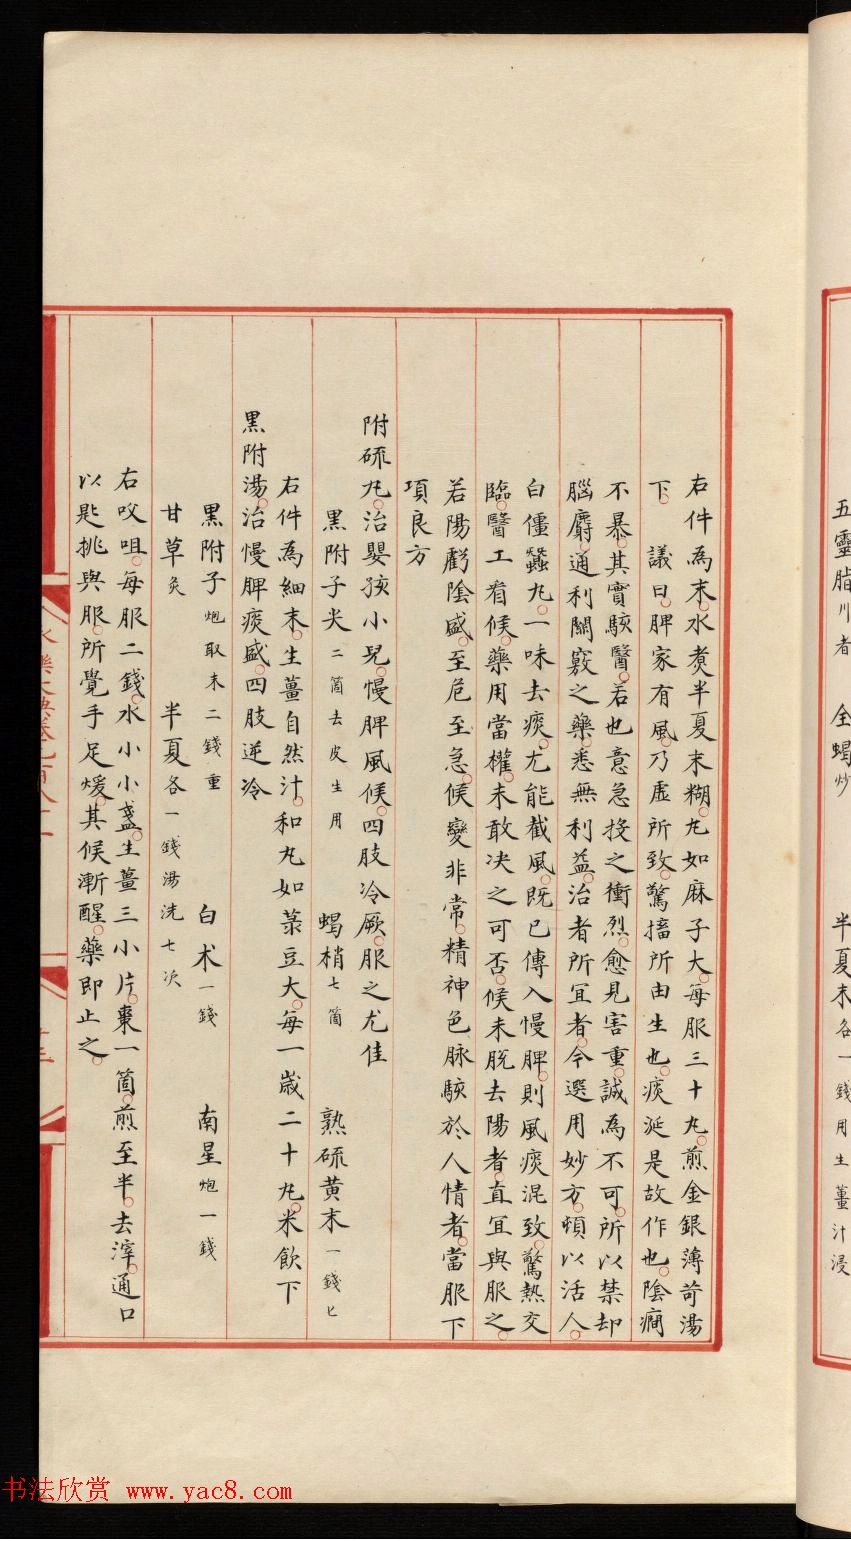 五靈脂川者　全蝎炒　半夏末各一錢用生薑汁浸
右件為末水煮半夏末糊丸如麻子大每服三十丸煎金銀薄苛湯
下　議曰脾家有風乃虛所致驚搐所由生也痰涎是故作也陰癎
不暴其實駭醫若也意急投之衝烈愈見害重誠為不可所以禁却
腦麝通利關竅之藥悉無利益治者所宜者今選用妙方頓以活人
白僵蠶丸一味去痰尤能截風既已傳入慢脾則風痰混致驚熱交
臨醫工看候藥用當權未敢决之可否候未脫去陽者直宜與服之
若陽虧陰盛至危至急候變非常精神色脉駭於人情者當服下
項良方
附硫丸治嬰孩小兒慢脾風候四肢冷厥服之尤佳
黑附子尖二箇去皮生用　蝎梢七箇　熟硫黄末一錢匕
右件為細末生薑自然汁和丸如菉豆大每一歲二十丸米飲下
黑附湯治慢脾痰盛四肢逆冷
黑附子炮取末二錢重　白术一錢　南星炮一錢
甘草炙　半夏各一錢湯洗七次
右㕮咀每服二錢水小小盞生薑三小片棗一箇煎至半去滓通口
以匙挑與服所覺手足煖其候漸醒藥即止之
書法欣赏 www.yac8.com